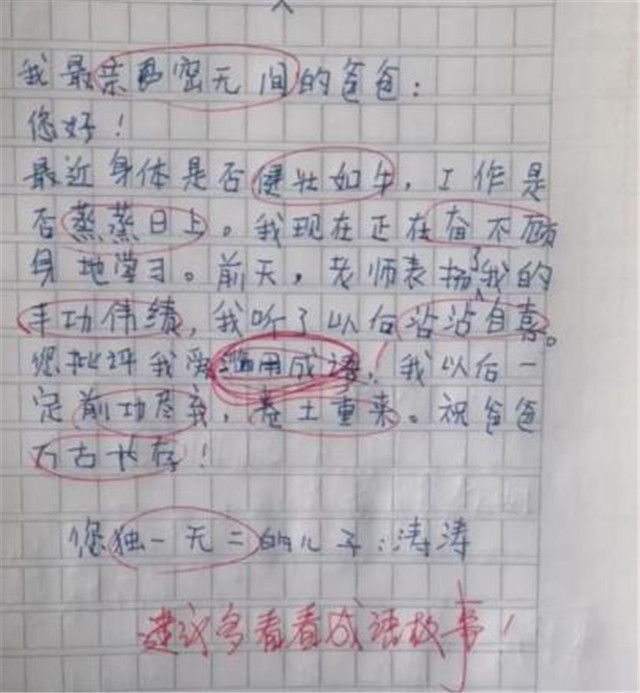 我最亲密无间的爸爸:
您好!
最近身体是否健壮如牛,工作是
否蒸蒸日上。我现在正在奋不顾
身地学习。前天,老师表扬了我的
丰功伟绩,我听了以后沾沾自喜。
您批评我爱滥用成语,我以后一
定前功尽弃,卷土重来。祝爸爸
万古长存!
您独一无二的儿子:涛涛
建议多看看成语故事!